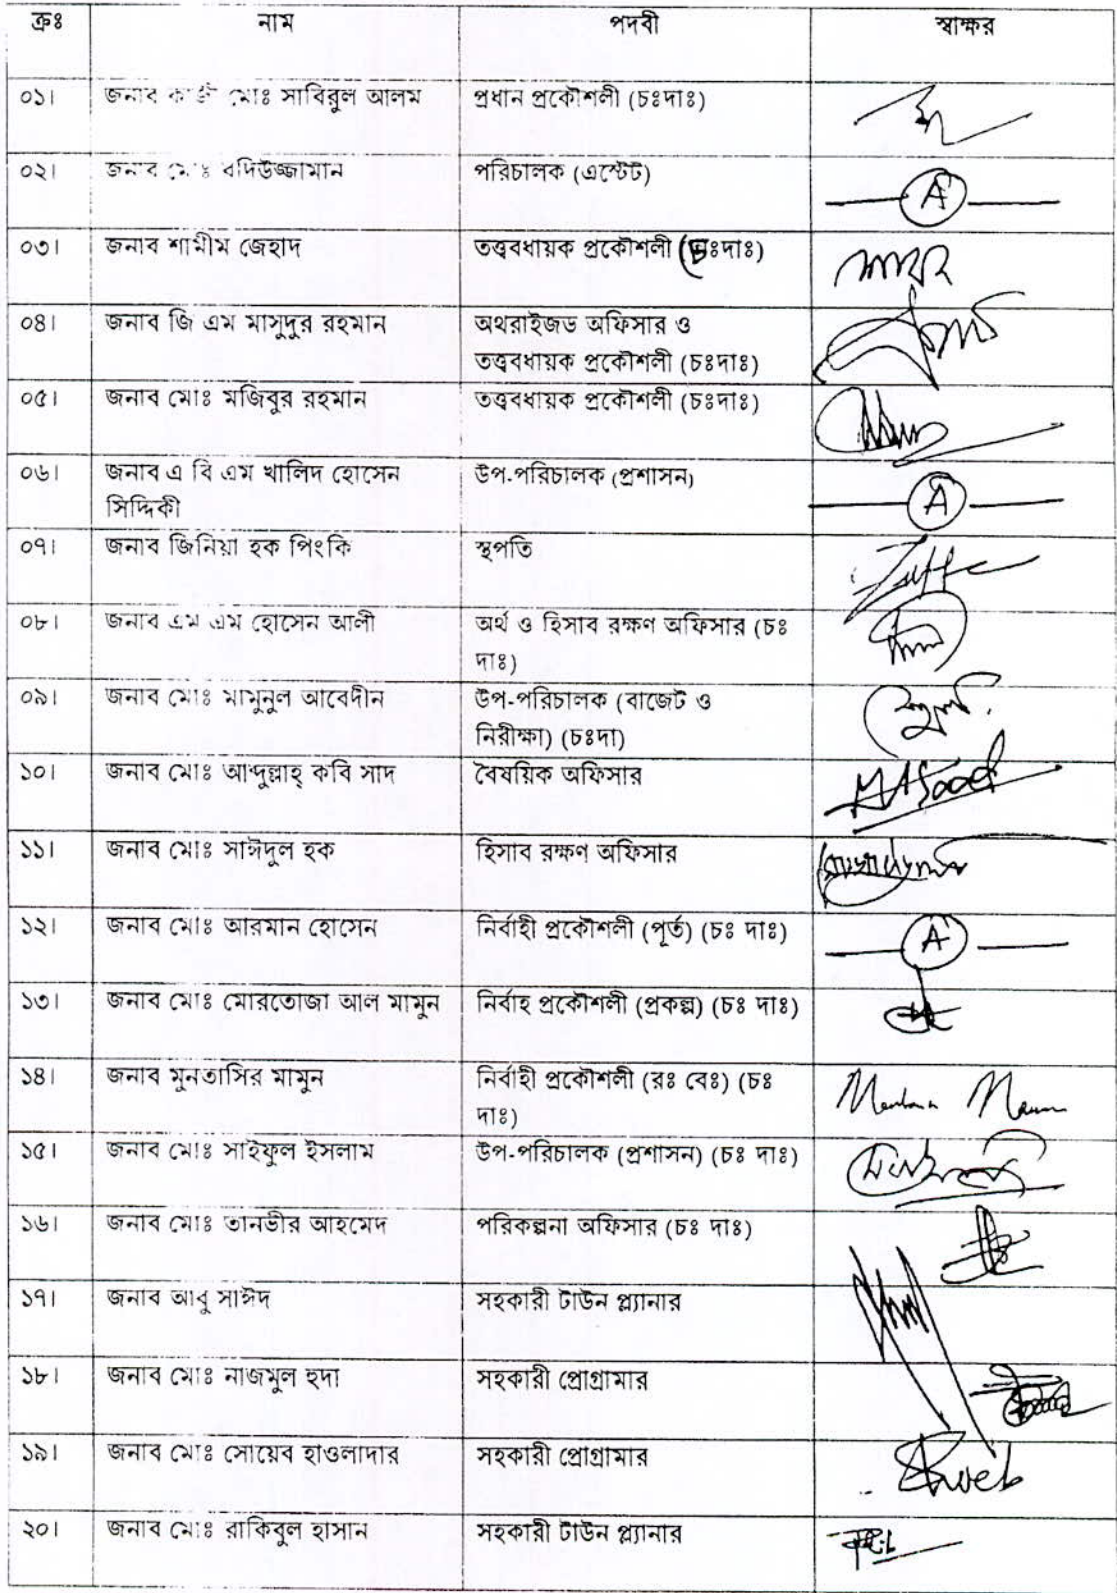 ক্রঃ নাম পদবী স্বাক্ষর
০১। জনাব কাজী মোঃ সাবিরুল আলম প্রধান প্রকৌশলী (চঃদাঃ)
০২। জনাব মোঃ বদিউজ্জামান পরিচালক (এস্টেট) A
০৩। জনাব শামীম জেহাদ তত্ত্ববধায়ক প্রকৌশলী (চঃদাঃ)
০৪। জনাব জি এম মাসুদুর রহমান অথরাইজড অফিসার ও
তত্ত্ববধায়ক প্রকৌশলী (চঃদাঃ)
০৫। জনাব মোঃ মজিবুর রহমান তত্ত্ববধায়ক প্রকৌশলী (চঃদাঃ)
০৬। জনাব এ বি এম খালিদ হোসেন উপ-পরিচালক (প্রশাসন) A
সিদ্দিকী
০৭। জনাব জিনিয়া হক পিংকি স্থপতি
০৮। জনাব এম এম হোসেন আলী অর্থ ও হিসাব রক্ষণ অফিসার (চঃ
দাঃ)
০৯। জনাব মোঃ মামুনুল আবেদীন উপ-পরিচালক (বাজেট ও
নিরীক্ষা) (চঃদা)
১০। জনাব মোঃ আব্দুল্লাহ্ কবি সাদ বৈষয়িক অফিসার MASaad
১১। জনাব মোঃ সাঈদুল হক হিসাব রক্ষণ অফিসার
১২। জনাব মোঃ আরমান হোসেন নির্বাহী প্রকৌশলী (পূর্ত) (চঃ দাঃ) A
১৩। জনাব মোঃ মোরতোজা আল মামুন নির্বাহ প্রকৌশলী (প্রকল্প) (চঃ দাঃ)
১৪। জনাব মুনতাসির মামুন নির্বাহী প্রকৌশলী (রঃ বেঃ) (চঃ
দাঃ)
১৫। জনাব মোঃ সাইফুল ইসলাম উপ-পরিচালক (প্রশাসন) (চঃ দাঃ)
১৬। জনাব মোঃ তানভীর আহমেদ পরিকল্পনা অফিসার (চঃ দাঃ)
১৭। জনাব আবু সাঈদ সহকারী টাউন প্ল্যানার
১৮। জনাব মোঃ নাজমুল হুদা সহকারী প্রোগ্রামার
১৯। জনাব মোঃ সোয়েব হাওলাদার সহকারী প্রোগ্রামার
২০। জনাব মোঃ রাকিবুল হাসান সহকারী টাউন প্ল্যানার